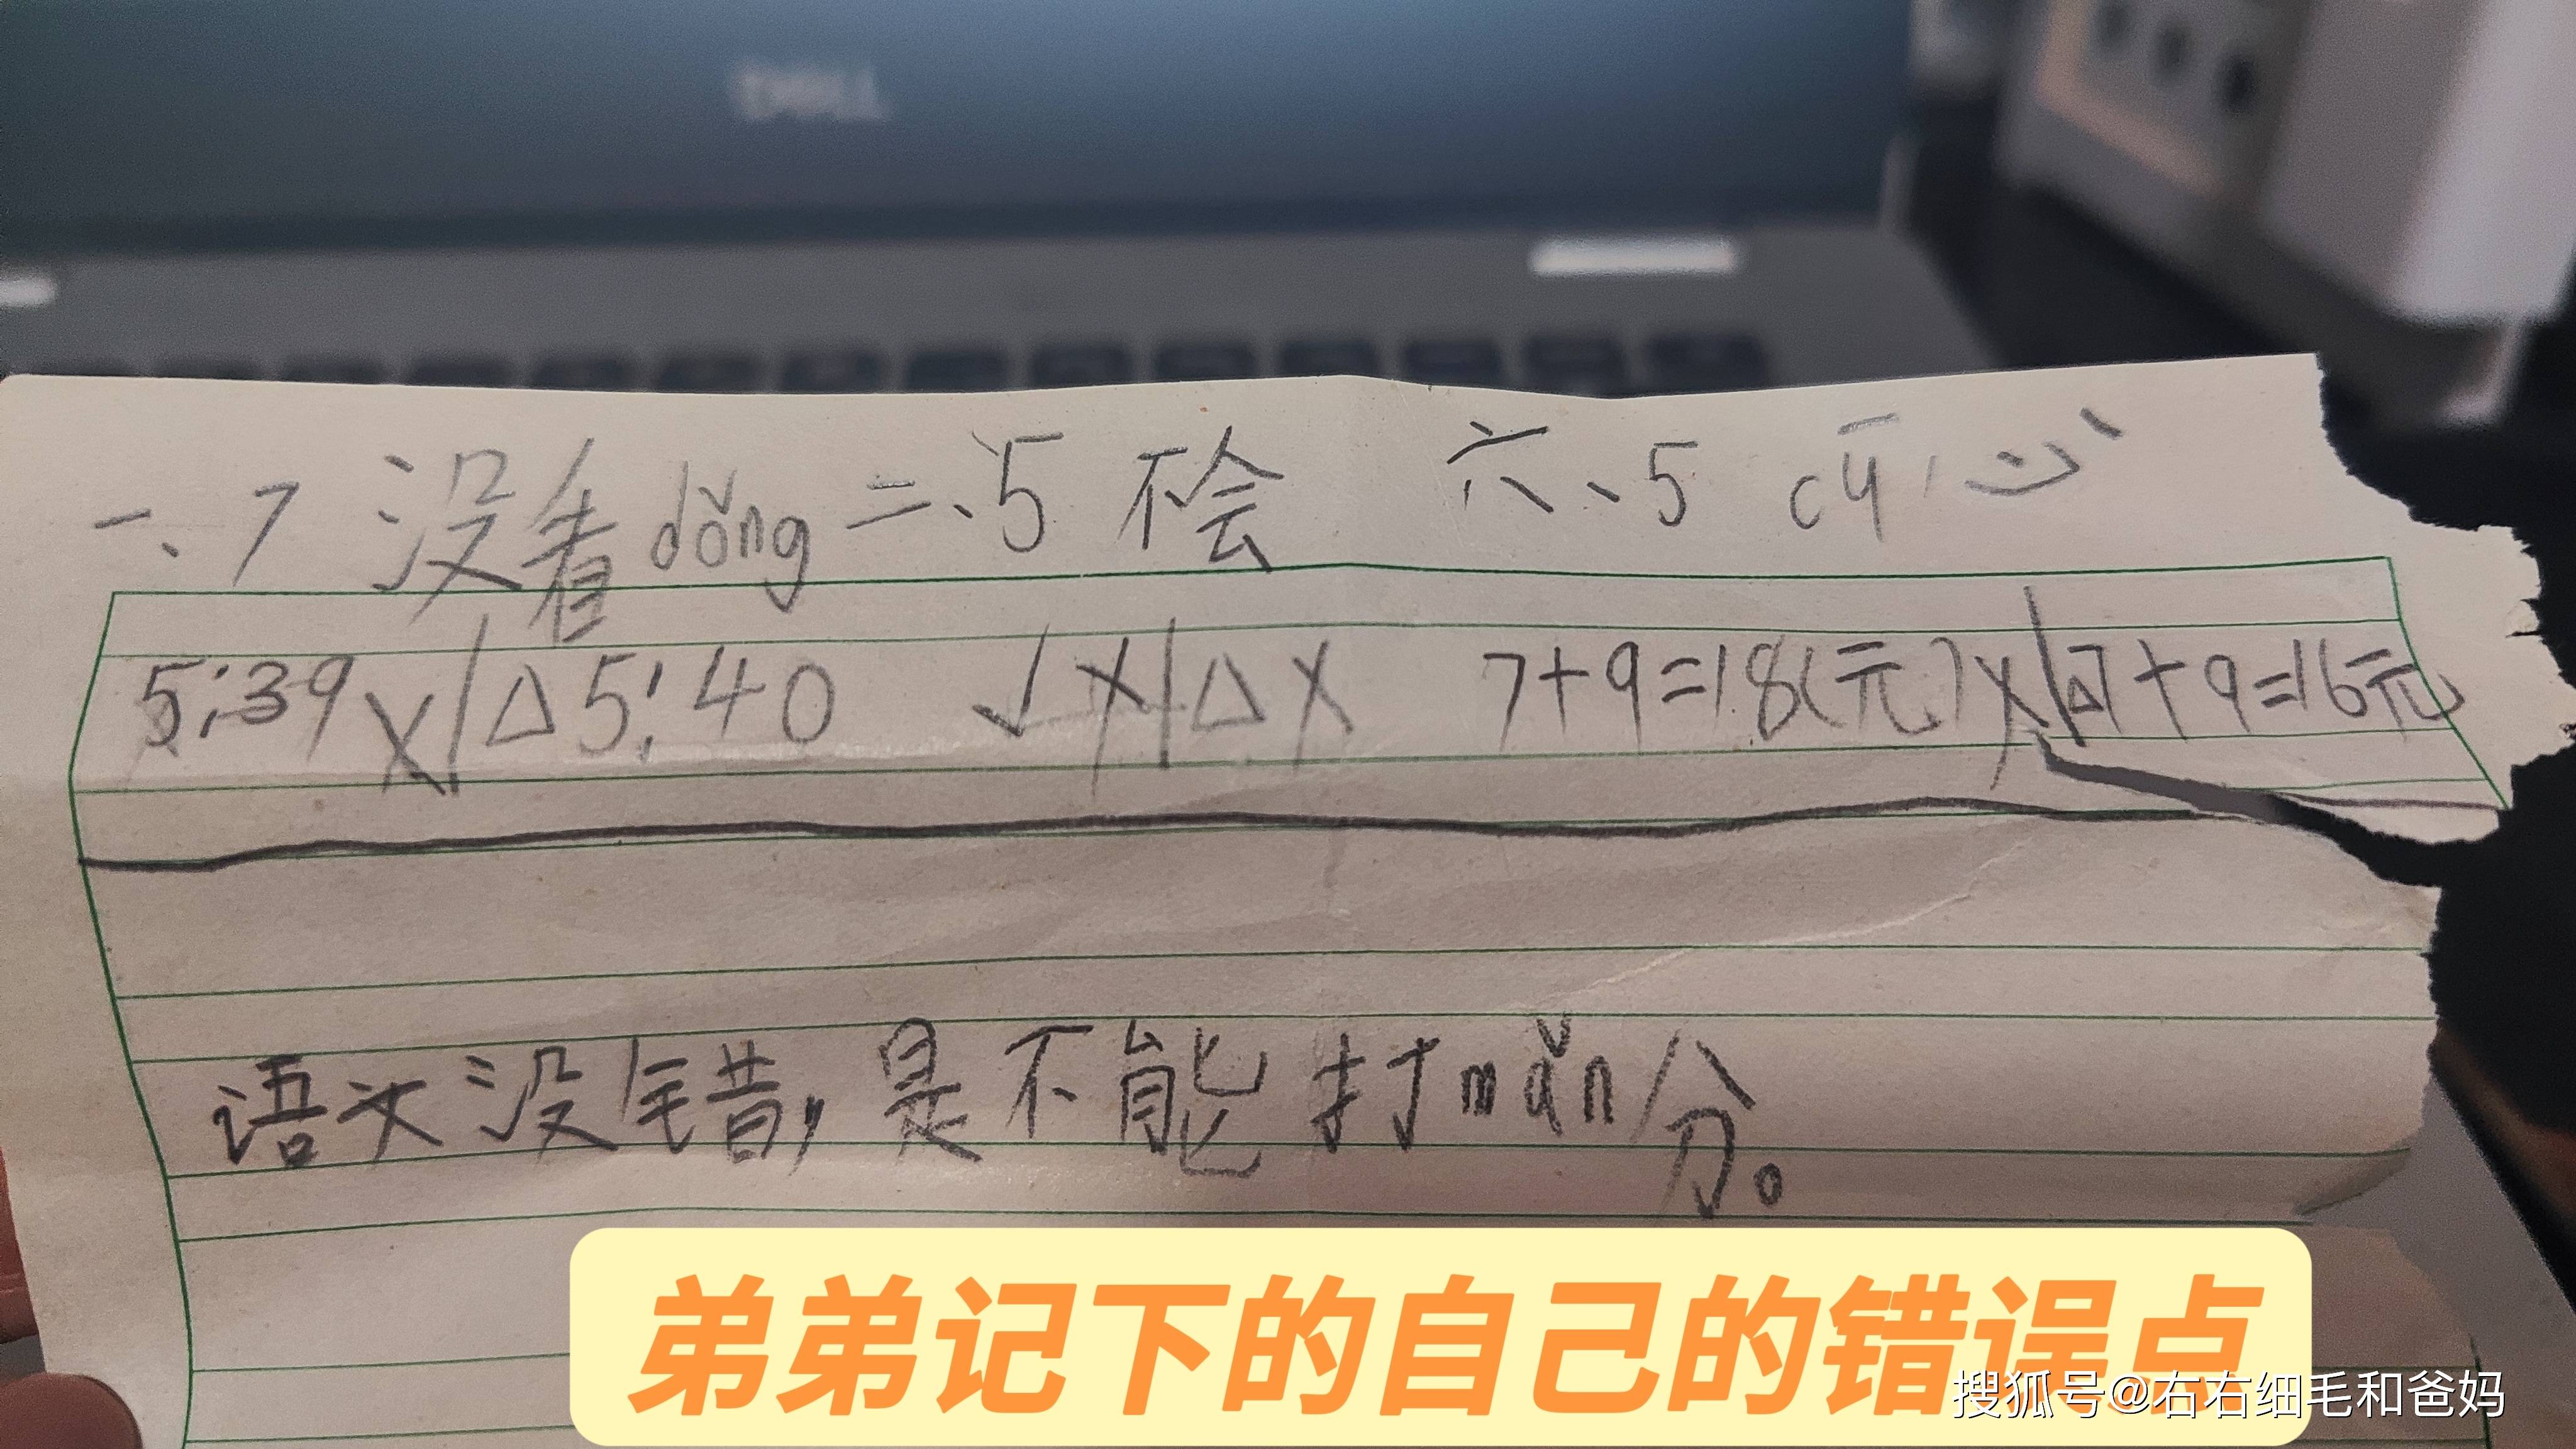 DELL
一、7 没看dǒng 二、5 不会 六、5 cū心
5:39 X|△5:40 ✓X|△X 7+9=18(元)X|△7+9=16元
语文没错,是不能打mǎn分。
弟弟记下的自己的错误点
搜狐号@右右细毛和爸妈